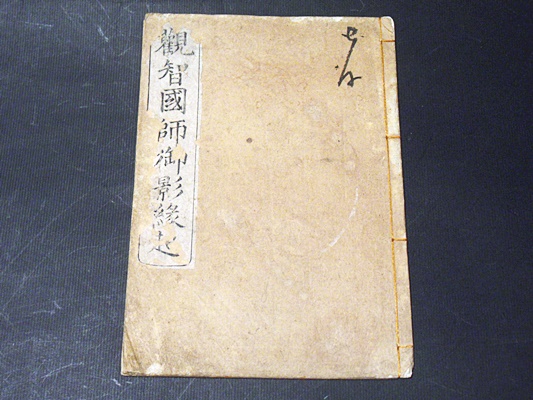 觀智國師御影縁起